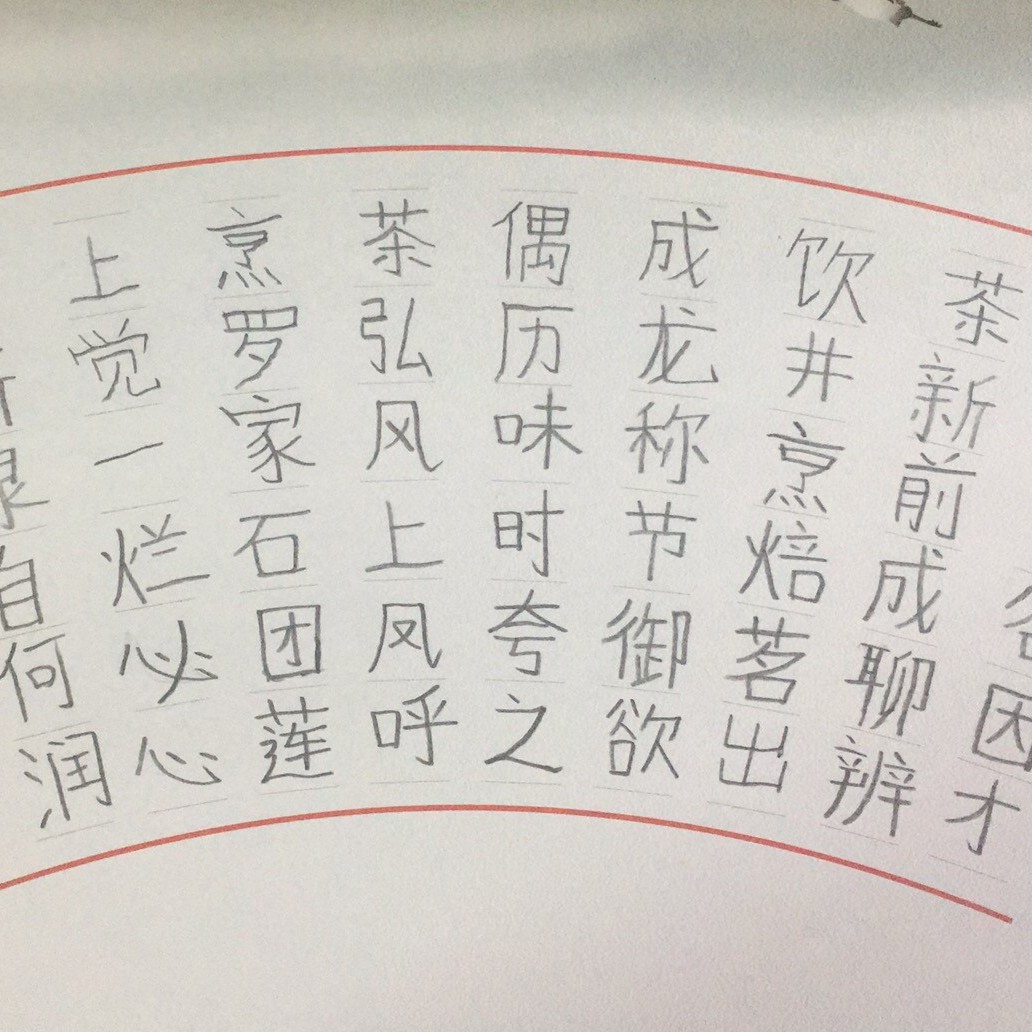 因才
茶新前成聊辨
饮井烹焙茗出
成龙称节御欲
偶历味时夸之
茶弘风上凤呼
烹罗家石团莲
上觉一烂必心
自何润